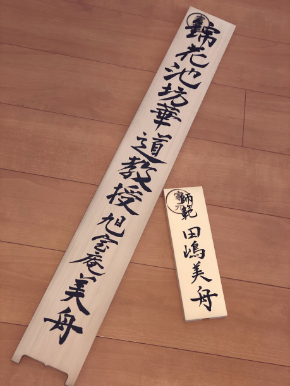 錦花池坊華道教授旭宝庵美舟
師範田嶋美舟